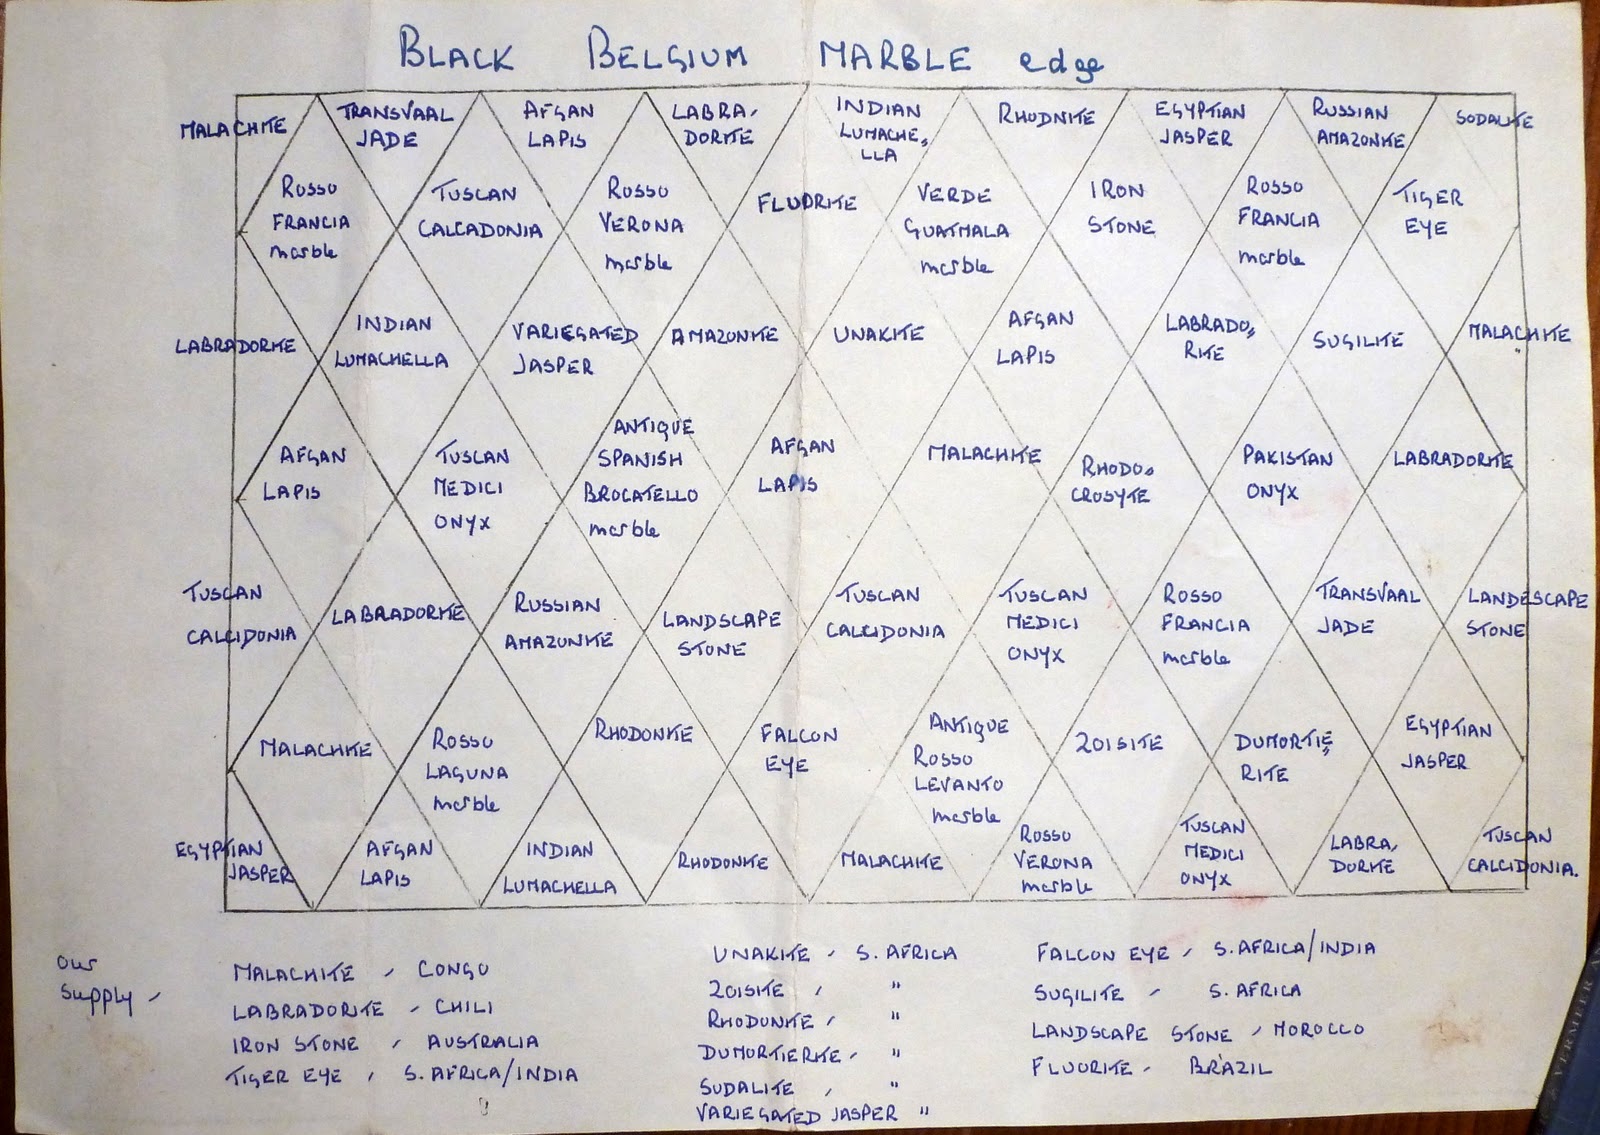 BLACK BELGIUM MARBLE edge
MALACHITE
TRANSVAAL
JADE
AFGAN
LAPIS
LABRA-
DORITE
INDIAN
LUMACHE=
LLA
RHODNITE
EGYPTIAN
JASPER
RUSSIAN
AMAZONITE
SODALITE
ROSSO
FRANCIA
marble
TUSCAN
CALCADONIA
ROSSO
VERONA
marble
FLUORITE
VERDE
GUATMALA
marble
IRON
STONE
ROSSO
FRANCIA
marble
TIGER
EYE
LABRADORITE
INDIAN
LUMACHELLA
VARIEGATED
JASPER
AMAZONITE
UNAKITE
AFGAN
LAPIS
LABRADO=
RITE
SUGILITE
MALACHITE
AFGAN
LAPIS
TUSCAN
MEDICI
ONYX
ANTIQUE
SPANISH
BROCATELLO
marble
AFGAN
LAPIS
MALACHITE
RHODO=
CROSYTE
PAKISTAN
ONYX
LABRADORITE
TUSCAN
CALCIDONIA
LABRADORITE
RUSSIAN
AMAZONITE
LANDSCAPE
STONE
TUSCAN
CALCIDONIA
TUSCAN
MEDICI
ONYX
ROSSO
FRANCIA
marble
TRANSVAAL
JADE
LANDESCAPE
STONE
MALACHITE
ROSSO
LAGUNA
marble
RHODONITE
FALCON
EYE
ANTIQUE
ROSSO
LEVANTO
marble
ZOISITE
DUMORTIE=
RITE
EGYPTIAN
JASPER
EGYPTIAN
JASPER
AFGAN
LAPIS
INDIAN
LUMACHELLA
RHODONITE
MALACHITE
ROSSO
VERONA
marble
TUSCAN
MEDICI
ONYX
LABRA-
DORITE
TUSCAN
CALCIDONIA.
our
supply -
MALACHITE - CONGO
LABRADORITE - CHILI
IRON STONE - AUSTRALIA
TIGER EYE - S. AFRICA/INDIA
UNAKITE - S. AFRICA
ZOISITE - "
RHODONITE - "
DUMORTIERITE - "
SODALITE - "
VARIEGATED JASPER "
FALCON EYE - S. AFRICA/INDIA
SUGILITE - S. AFRICA
LANDSCAPE STONE - MOROCCO
FLUORITE - BRAZIL
VERMEER